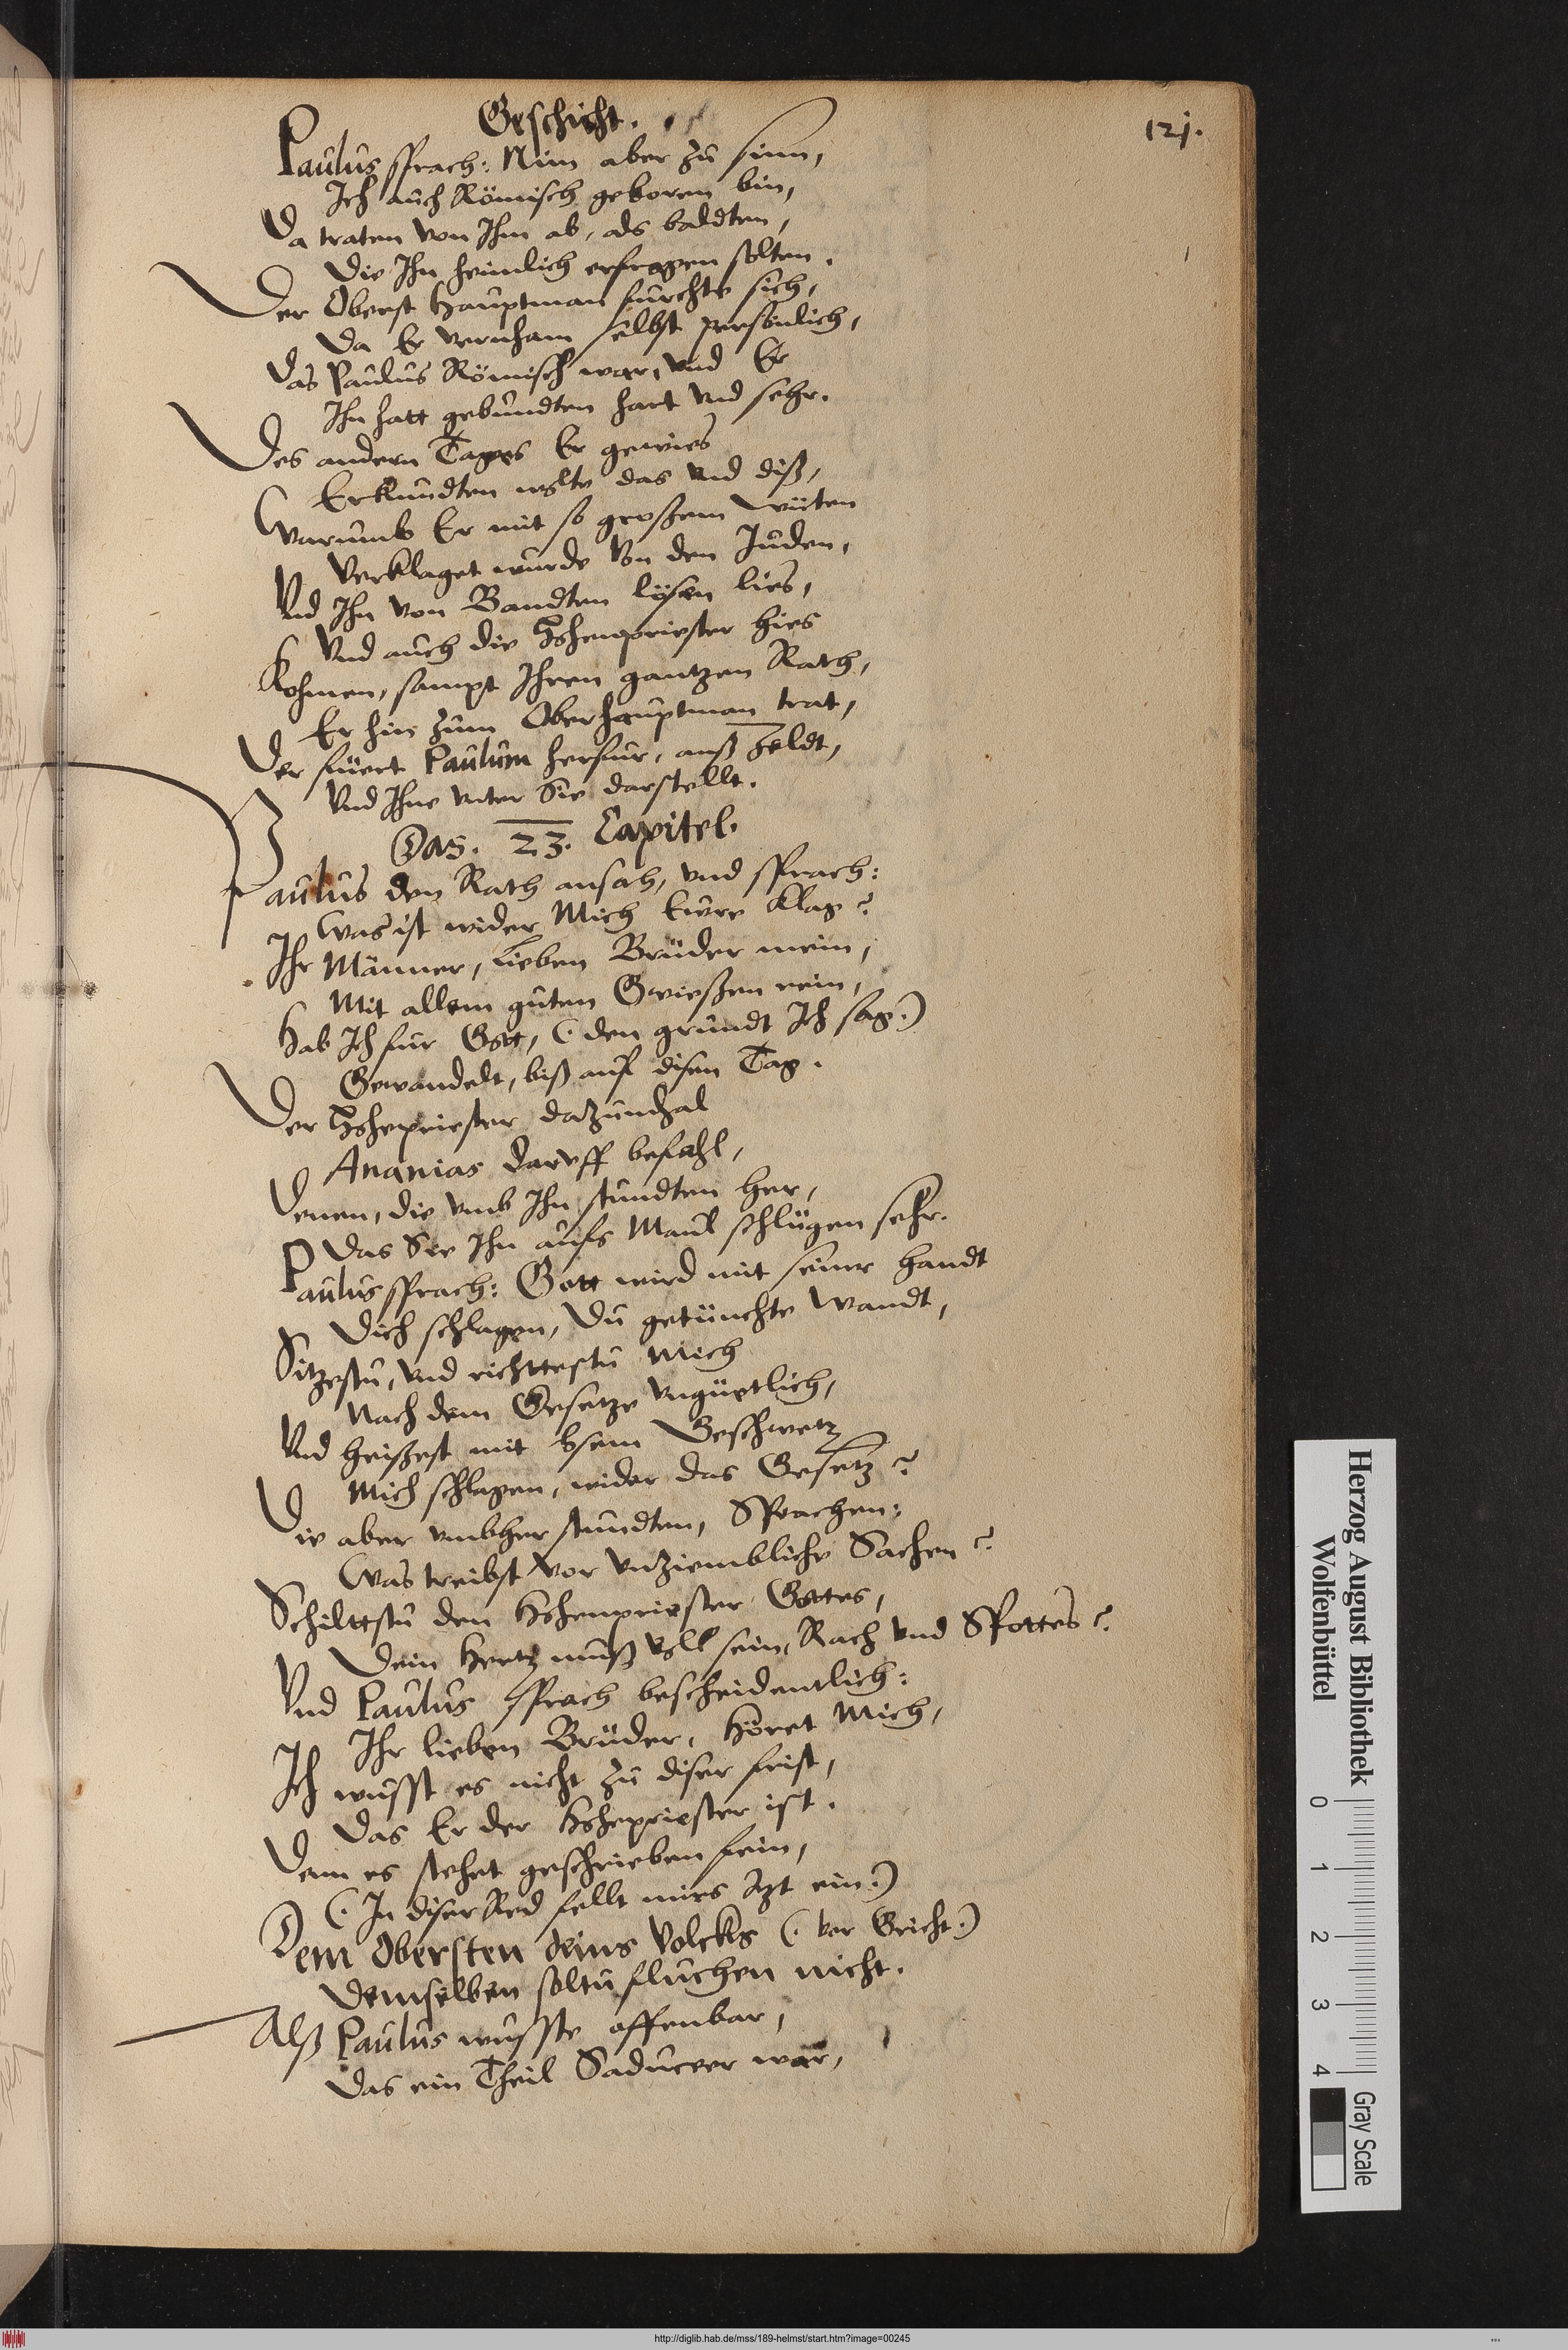 Geschicht.
121.
Paulus sprach: Nim aber zu sinn,
Ich auch Römisch geboren bin,
Da traten von Ihm ab, als baldten,
Die Ihn heimlich erfragen solten.
Der Oberst Hauptman furchte sich,
Da Er vernham selbst persönlich,
Das Paulus Römisch war, und Er
Ihn hatt gebundten hart und sehr.
Des andern Tages Er gewies
Erkundten wolte das und diß,
Warumb Er mit so großem wüten
Verklaget wurde von den Juden,
Und Ihn von Bandten lösen lies,
Und auch die Hohenpriester hies
Kohmen, sampt Ihren gantzen Rath,
Er hin zum Oberhauptman trat,
Der füert Paulum herfur, auß Zeldt,
Und Ihne unter Sie darstellt.
Das. 23. Capitel.
Paulus den Rath ansah, und sprach:
Was ist wider Mich Eure Klag?
Ihr Männer, lieben Brüder mein,
Mit allem guten Gewießen rein,
Hab Ich fur Gott, (: den grundt Ich sag:)
Gewandelt, biß auf disen Tag.
Der Hohepriester dazumhal
Ananias daruff befahl,
Denen, die umb Ihn stundten her,
Das Sie Ihn aufs Maul schlügen sehr.
Paulus sprach: Gott wird mit seiner Handt
Dich schlagen, Du getünchte Wandt,
Sitzestu, und richttestu Mich
Nach dem Gesetze ungüetlich,
Und heißest mit bsem Geschwetz
Mich schlagen, wider das Gesetz?
Die aber umbher stundten, Sprachen:
Was treibst vor unziembliche Sachen?
Schilttstu den Hohenpriester Gottes,
Dein Hertz muß voll sein, Rach und Spottes?
Und Paulus sprach bescheidentlich:
Ihr lieben Brüder, Höret Mich,
Ich wusst es nicht zu diser frist,
Das Er der Hohepriester ist.
Denn es stehet geschrieben fein,
(: In diser Red fellt mirs Itzt ein:)
Dem Obersten deins Volcks (: vor Gricht:)
Demselben soltu fluchen nicht.
Alß Paulus wusste offenbar,
Das ein Theil Saduceer war,
Herzog August Bibliothek
Wolfenbüttel
0 1 2 3 4
Gray Scale
http://diglib.hab.de/mss/189-helmst/start.htm?image=00245